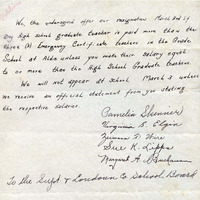 We, the undersigned offer our resignation March 3rd if
any High School graduate teacher is paid more than the
three (3) Emergency Certificate teachers in the Grade
School at Alda unless you make their salary equal
to or more than the High School Graduate teachers.
We will not appear at School March 3 unless
we receive an official statement from you stating
the respective salaries.
Pamelia Skinner
Virginia B. Elgin
Emma F. Wire
Sue K. Lipps
Margaret A.
To the Supt & Loudoun Co School Board